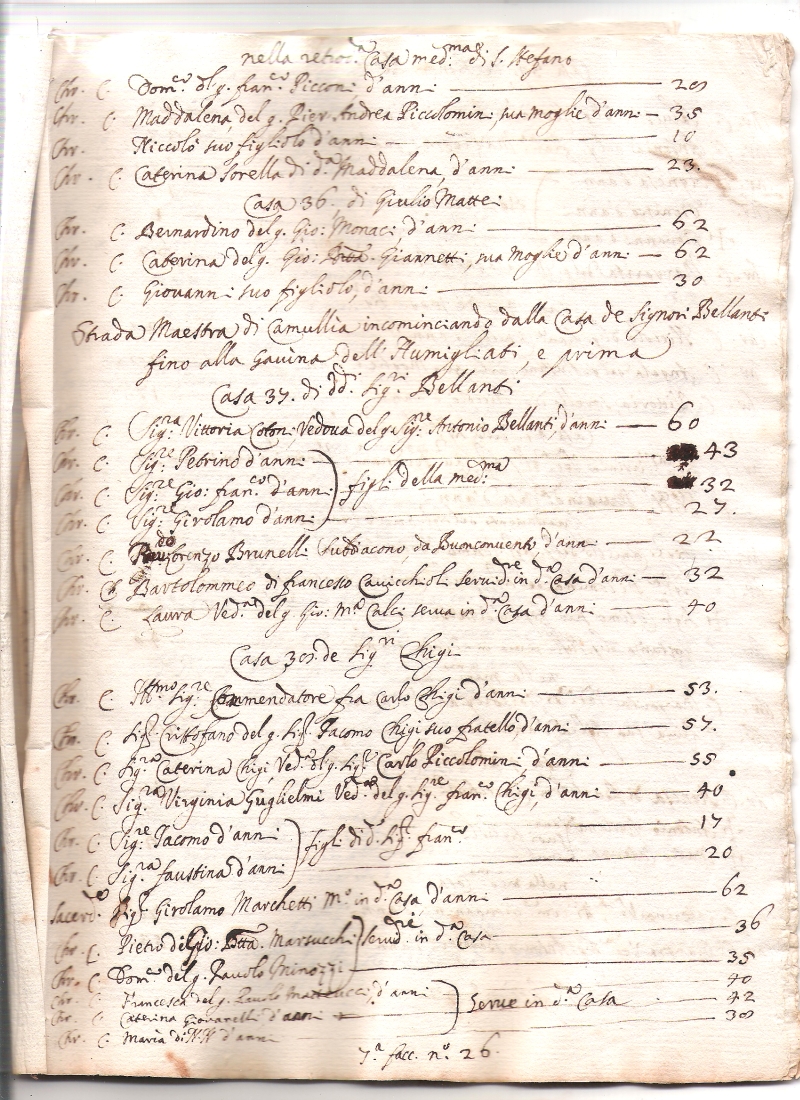 nella retros.a Casa med.ma di S. Stefano
Chr. C. Dom.co del q. Fran.co Picconi d'anni — 28
Chr. C. Maddalena del q. Pier Andrea Piccolomini, sua moglie d'anni — 35
Chr. Niccolò suo figliolo d'anni — 10
Chr. C. Caterina Sorella di d.a Maddalena, d'anni — 23.
Casa 36. di Giulio Mattei
Chr. C. Bernardino del q. Gio: Monaci d'anni — 62
Chr. C. Caterina del q. Gio: Batta Giannetti, sua Moglie d'anni — 62
Chr. C. Giovanni suo figliolo, d'anni — 30
Strada Maestra di Camullia incominciando dalla Casa de Signori Bellanti
fino alla Gavina dell' Humigliati, e prima
Casa 37. di dd. Sig.ri Bellanti
Chr. C. Sig.ra Vittoria Cotoni Vedova del q. Sig.re Antonio Bellanti, d'anni — 60
Chr. C. Sig.re Petrino d'anni — 43
Chr. C. Sig.re Gio: Fran.co d'anni figli della med.ma — 32
Chr. C. Sig.re Girolamo d'anni — 27.
Chr. C. Lorenzo Brunelli Suddiacono, da Buonconvento, d'anni — 22
Chr. C. Bartolommeo di Francesco Cavicchioli servid.re in d.a Casa d'anni — 32
Chr. C. Laura Ved.a del q. Gio: M.a Calci serva in d.a Casa d'anni — 40
Casa 38. de Sig.ri Chigi
Chr. C. Ill.mo Sig.re Commendatore fra Carlo Chigi d'anni — 53.
Chr. C. Sig.r Cristofano del q. Sig.r Jacomo Chigi suo fratello d'anni — 57.
Chr. C. Sig.ra Caterina Chigi Ved.a del q. Sig.r Carlo Piccolomini d'anni — 55
Chr. C. Sig.ra Virginia Guglielmi Ved.a del q. Sig.re Fran.co Chigi, d'anni — 40
Chr. C. Sig.re Jacomo d'anni figli di d. Sig.r Fran.co — 17
Chr. C. Sig.ra Faustina d'anni — 20
Sacerd.e Sig.r Girolamo Marchetti M.o in d.a Casa d'anni — 62
Chr. C. Pietro di Gio: Batta Marsucchi servid.ri in d.a Casa — 36
Chr. C. Dom.co del q. Pavolo Minozzi — 35
Chr. C. Francesca del q. Pavolo Matteucci, d'anni — 40
Chr. C. Caterina Giovanelli d'anni Serve in d.a Casa — 42
Chr. C. Maria di NN d'anni — 38
7.a facc. n.o 26.